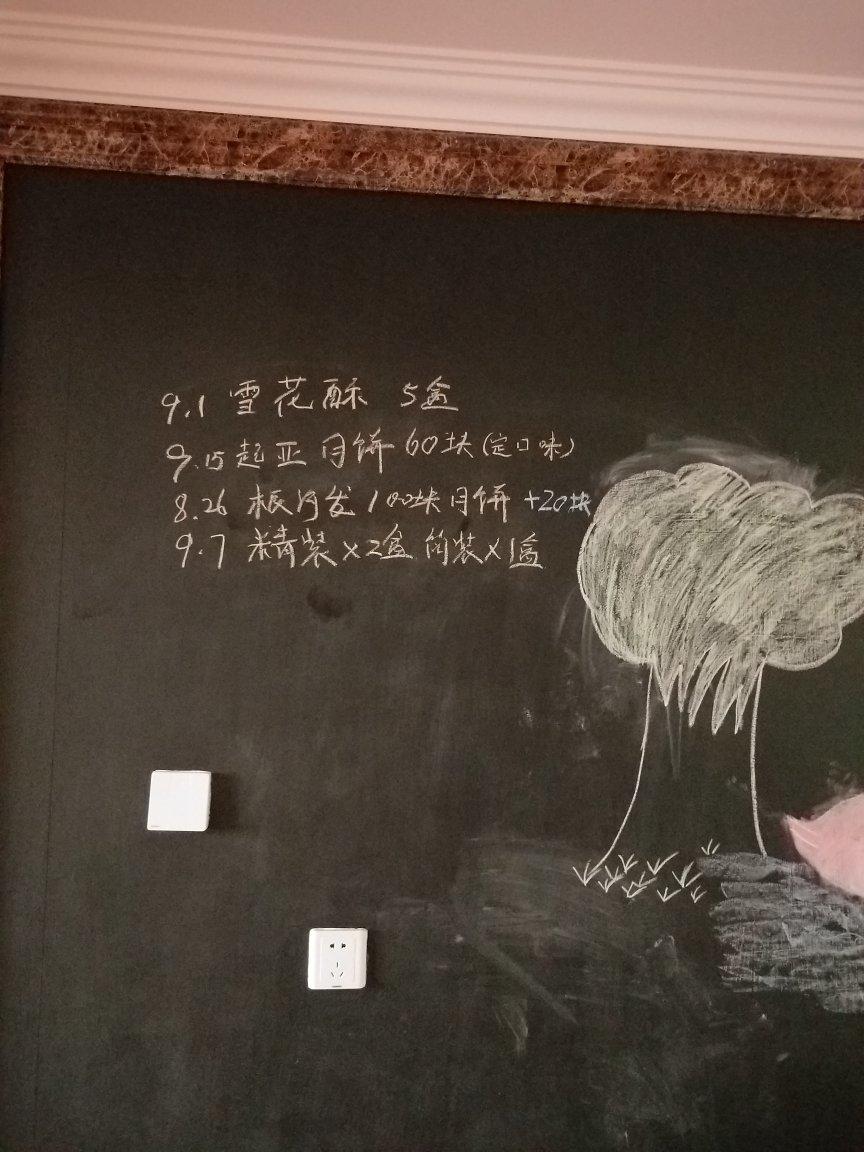 9.1 雪花酥 5盒
9.15 起亚 月饼 60块(定口味)
8.26 100块月饼 +20块
9.7 精装×2盒 简装×1盒